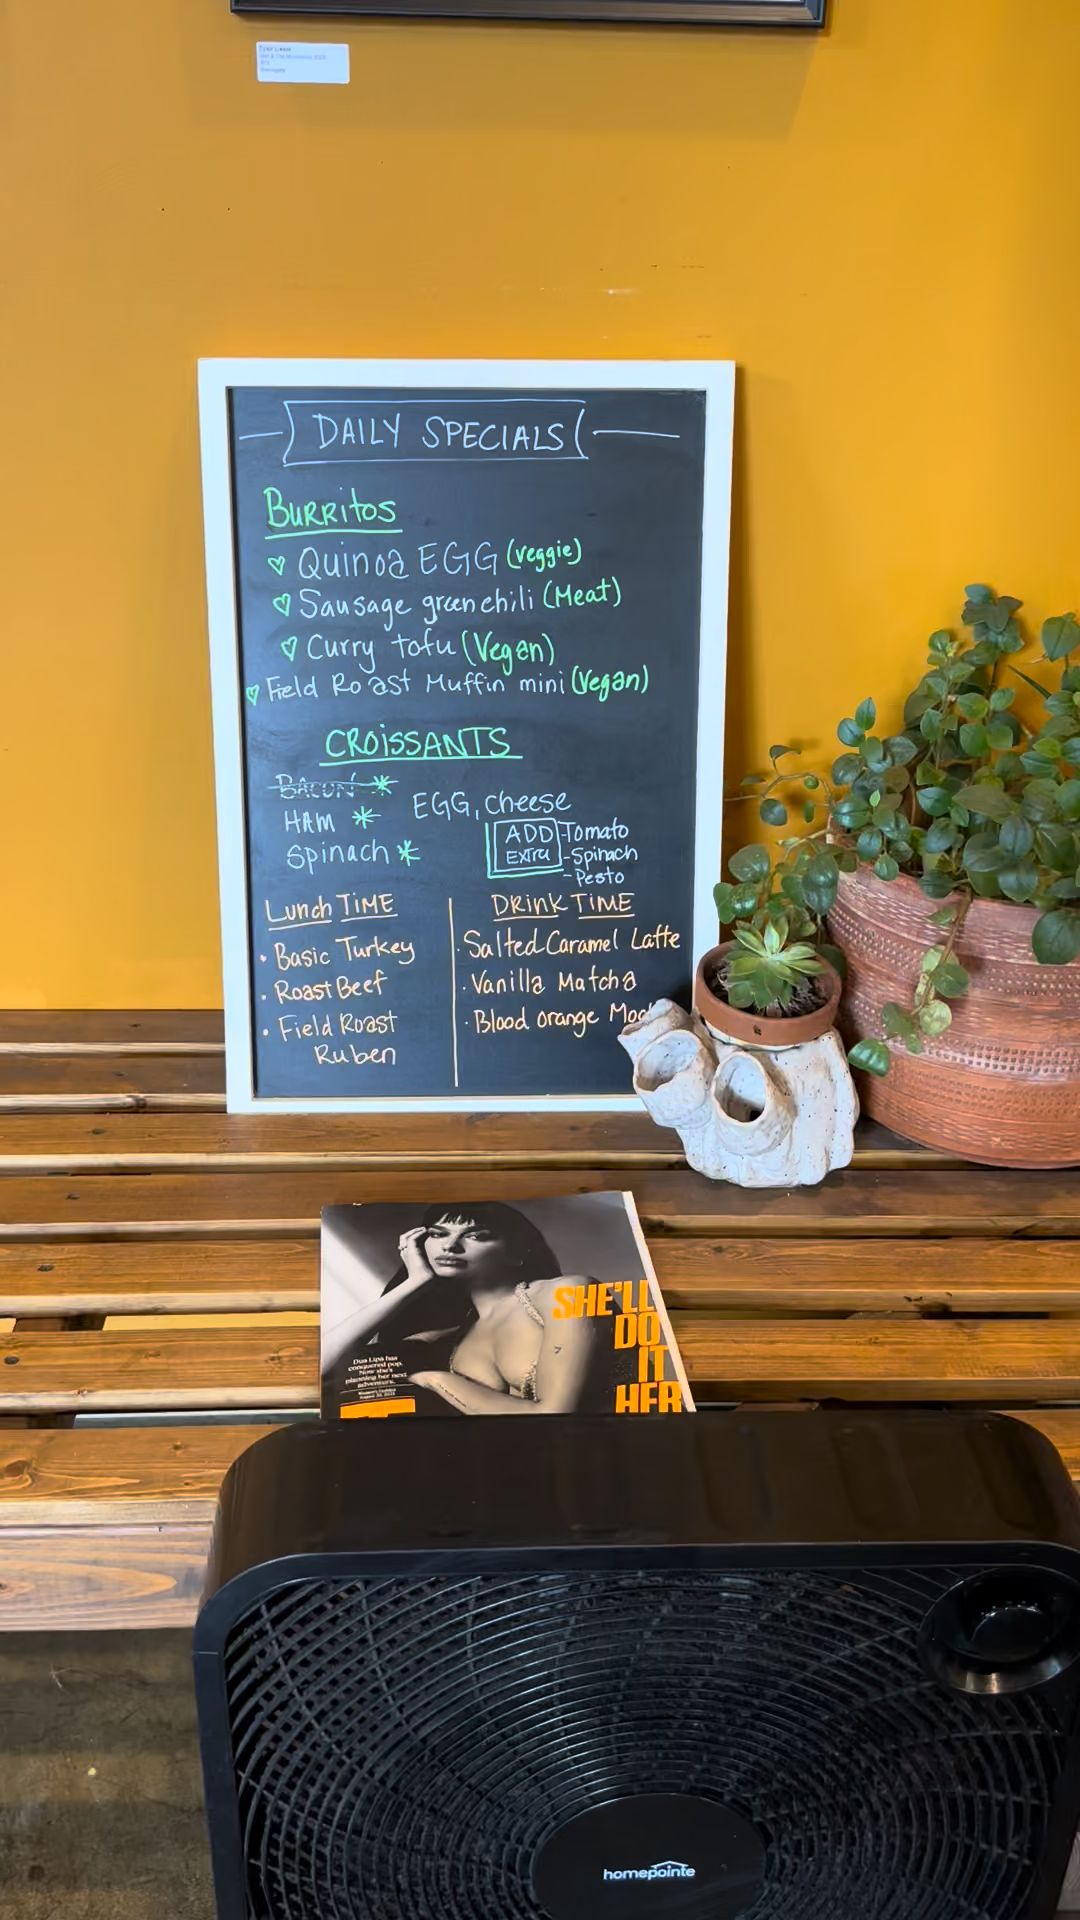 Tyler Lieser
DAILY SPECIALS
BURRitos
Quinoa EGG (veggie)
Sausage green chili (Meat)
Curry tofu (Vegan)
Field Roast Muffin mini (Vegan)
CROISSANTS
BACON
HAM
EGG, cheese
Spinach
ADD EXTRA
Tomato
-Spinach
-Pesto
Lunch TIME
• Basic Turkey
• Roast Beef
• Field Roast
Ruben
DRINK TIME
· Salted Caramel Latte
· Vanilla Matcha
· Blood orange
SHE'LL
DO
IT
HER
Dua Lipa has
conquered pop.
Now she's
planning her next
adventure.
homepointe